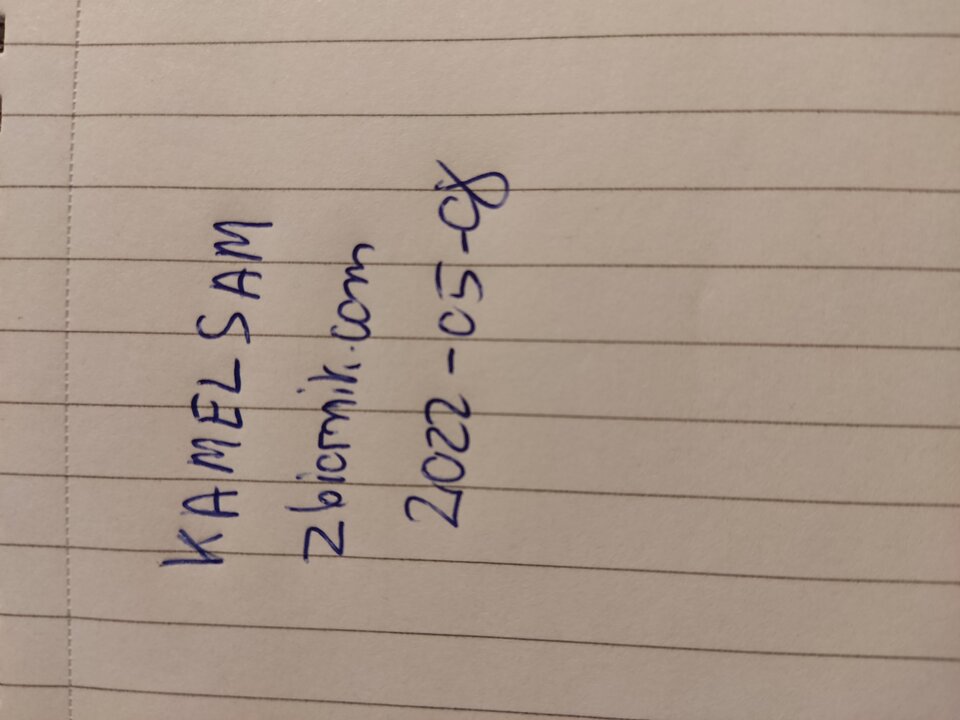 KAMELSAM
zbiornik.com
2022-05-08